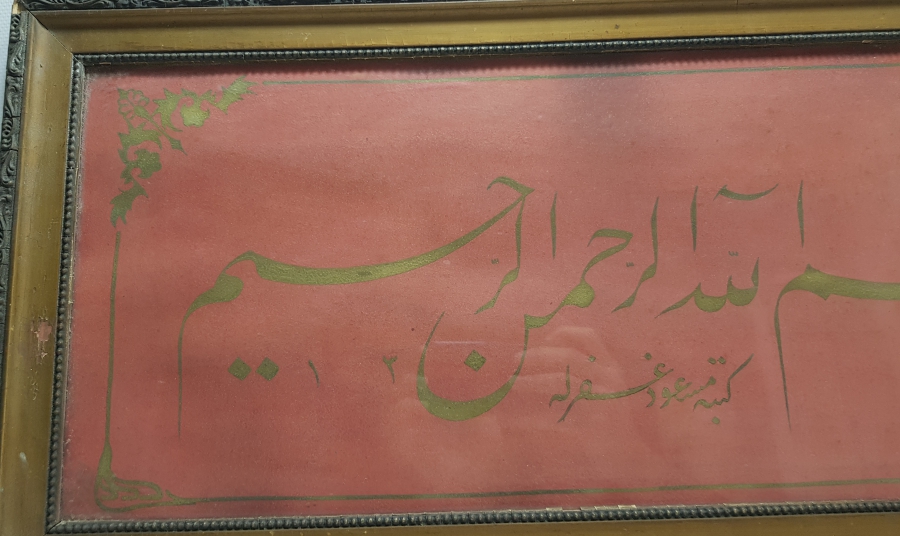 سم الله الرحمن الرحيم
كتبه مسعود غفر له
١ ٢